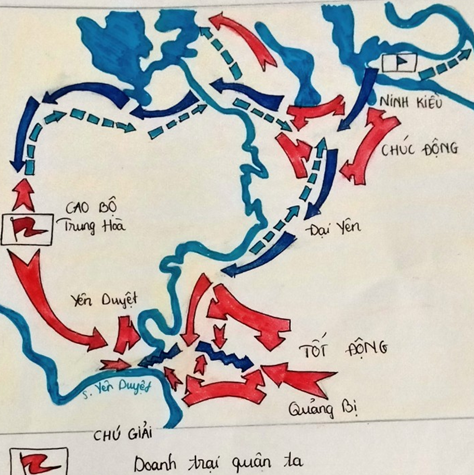 NINH KIỀU
CHÚC ĐỘNG
CAO BỘ
Trung Hoà
Đại Yên
Yên Duyệt
TỐT ĐỘNG
S. Yên Duyệt
Quảng Bị
CHÚ GIẢI
Doanh trại quân ta